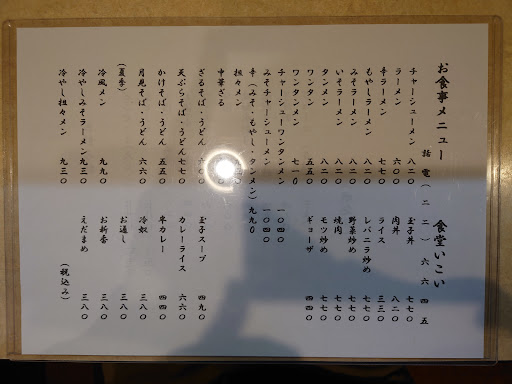 お食事メニュー 食堂いこい
話 電 (二二) 六六四五
チャーシューメン 八二〇
ラーメン 六〇〇
辛ラーメン 七七〇
もやしラーメン 八二〇
みそラーメン 八二〇
いそラーメン 八二〇
タンメン 八二〇
ワンタン 五五〇
ワンタンメン 七一〇
チャーシューワンタンメン 一〇四〇
みそチャーシューメン 一〇四〇
辛(みそ・もやし・タンメン) 九九〇
担々メン
中華ざる
ざるそば・うどん 六〇〇
天ぷらそば・うどん 七七〇
かけそば・うどん 五五〇
月見そば・うどん 六六〇
(夏季)
冷風メン 九九〇
冷やしみそラーメン 九三〇
冷やし担々メン 九三〇
玉子丼 七七〇
肉丼 八二〇
ライス 三三〇
レバニラ炒め 七七〇
野菜炒め 七七〇
焼肉 七七〇
モツ炒め 七七〇
ギョーザ 四四〇
玉子スープ 四九〇
カレーライス 六六〇
半カレー 四四〇
冷奴 三八〇
お通し 三八〇
お新香 三八〇
えだまめ 三八〇
(税込み)